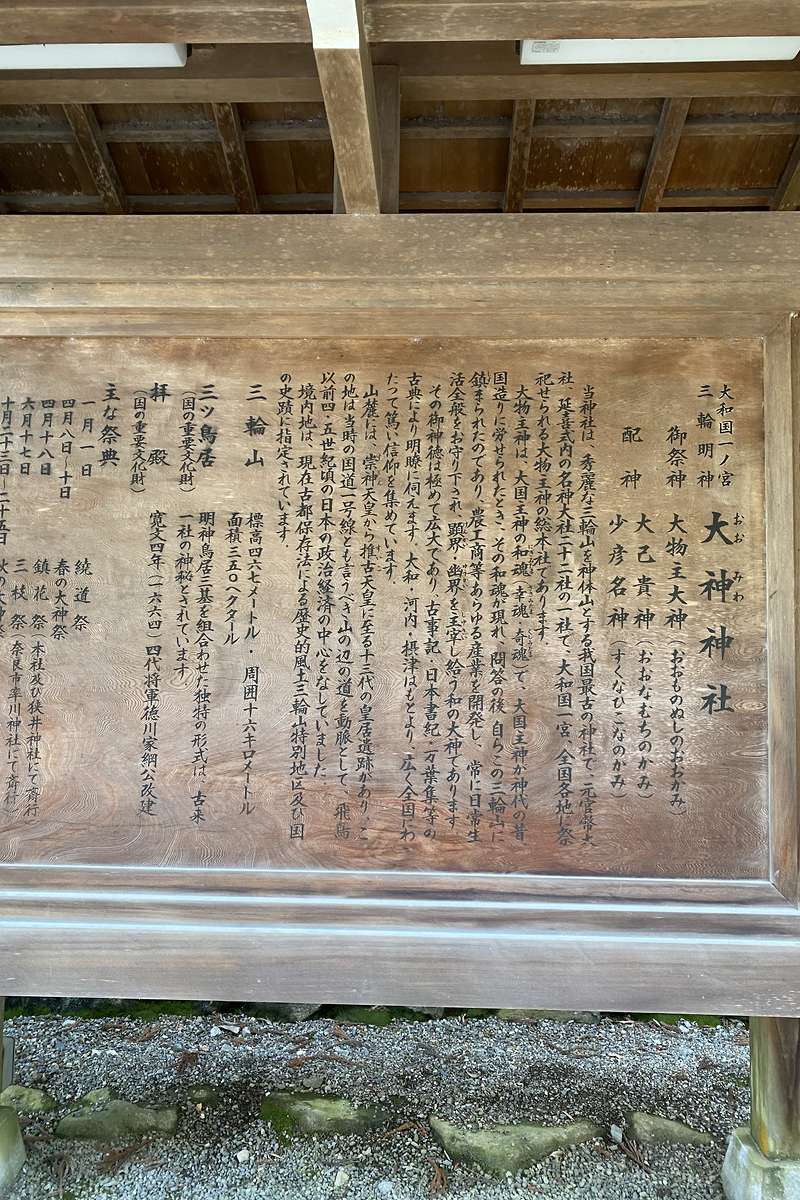 大和国一ノ宮
三輪明神
大神神社
おお みわ
御祭神 大物主大神（おおものぬしのおおかみ）
配神 大己貴神（おおなむちのかみ）
少彦名神（すくなひこなのかみ）
当神社は、秀麗な三輪山を神体山とする我国最古の神社で、元官幣大
社、延喜式内の名神大社二十二社の一社で、大和国一宮、全国各地に祭
祀せられる大物主神の総本社であります。
大物主神は、大国主神の和魂（幸魂、奇魂）で、大国主神が神代の昔
国造りに労せられたとき、その和魂が現れ、問答の後、自らこの三輪山に
鎮まられたのであり、農工商等あらゆる産業を開発し、常に日常生
活全般をお守り下され、顕界・幽界を主宰し給う和の大神であります
その御神徳は極めて広大であり、古事記・日本書紀・万葉集等の
古典により明瞭に伺えます。大和・河内・摂津はもとより、広く全国にわ
たって篤い信仰を集めています。
山麓には、崇神天皇から推古天皇に至る十三代の皇居遺跡があり、こ
の地は当時の国道一号線とも言うべき山の辺の道を動脈として、飛鳥
以前四・五世紀頃の日本の政治経済の中心をなしていました。
境内地は、現在古都保存法による歴史的風土三輪山特別地区及び国
の史蹟に指定されています。
三輪山 標高四六七メートル・周囲十六キロメートル
面積三五〇ヘクタール
三ツ鳥居 明神鳥居三基を組合わせた独特の形式は、古来
（国の重要文化財） 一社の神秘とされています。
拝殿 寛文四年（一六六四）四代将軍徳川家綱公改建
（国の重要文化財）
主な祭典
一月一日 繞道祭
四月八日〜十日 春の大神祭
四月十八日 鎮花祭（本社及び狭井神社にて斉行）
六月十七日 三枝祭（奈良市率川神社にて斉行）
十月二十三日〜二十五日 秋の大神祭